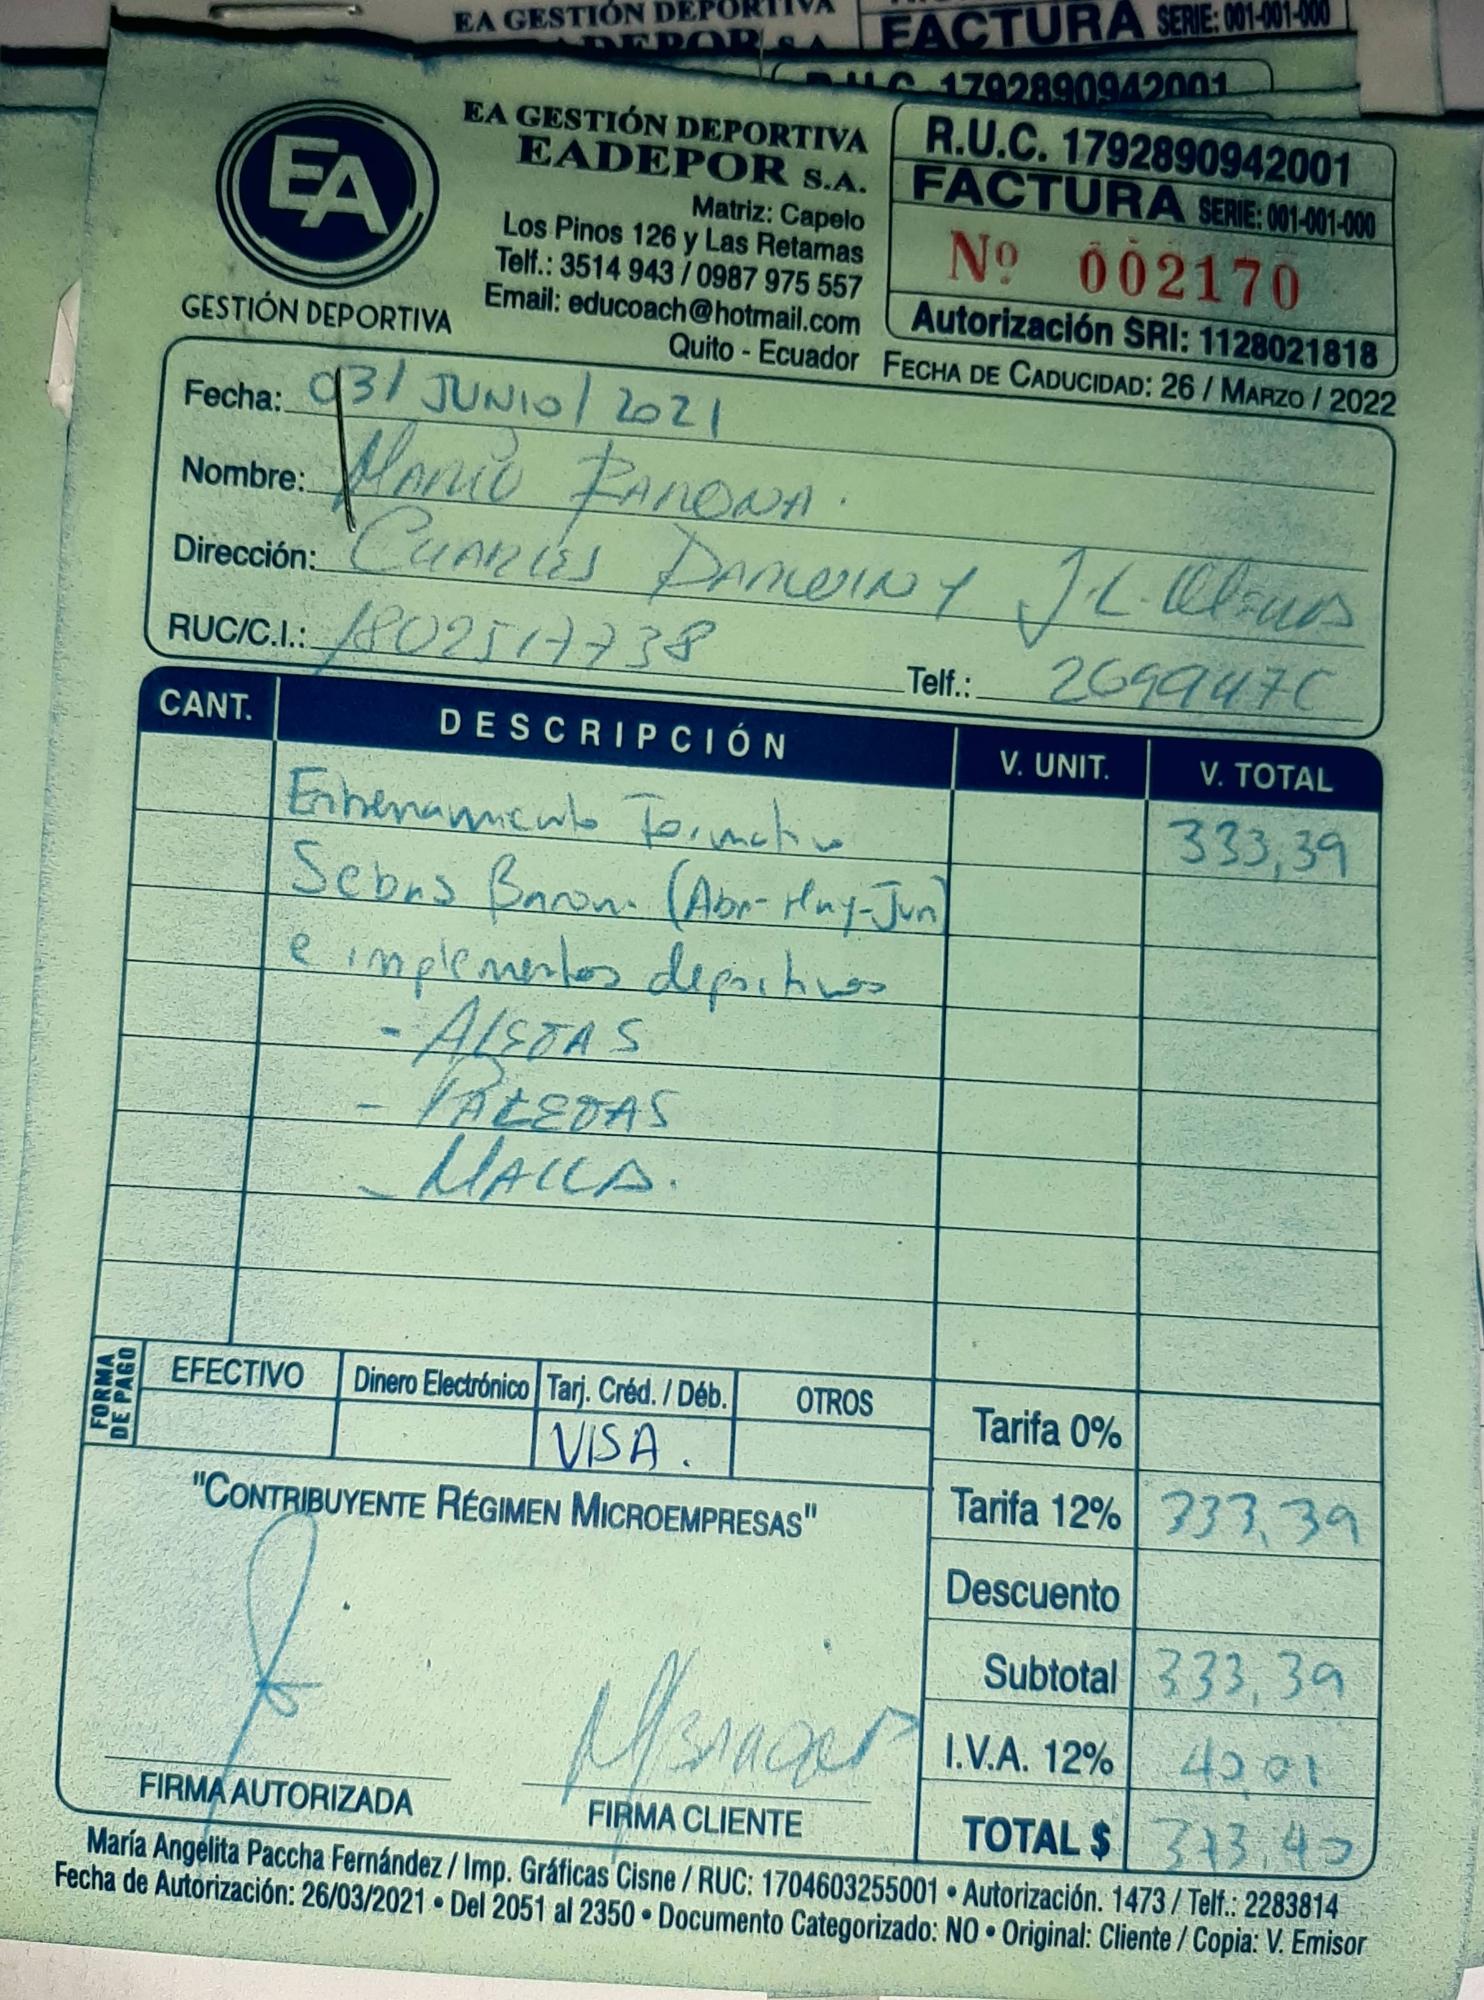 EA GESTIÓN DEPORTIVA
FACTURA SERIE: 001-001-000
EADEPOR S.A.
R.U.C. 1792890942001
EA
GESTIÓN DEPORTIVA
EA GESTIÓN DEPORTIVA
EADEPOR S.A.
Matriz: Capelo
Los Pinos 126 y Las Retamas
Telf.: 3514 943 / 0987 975 557
Email: educoach@hotmail.com
Quito - Ecuador
R.U.C. 1792890942001
FACTURA SERIE: 001-001-000
Nº 002170
Autorización SRI: 1128021818
FECHA DE CADUCIDAD: 26 / MARZO / 2022
Fecha: 03/ JUNIO / 2021
Nombre: MARIO
Dirección: CHARLES DARWIN Y J.L.
RUC/C.I.: 1802517738
Telf.:
CANT. DESCRIPCIÓN V. UNIT. V. TOTAL
Entrenamiento Formativo 333,39
Sebas Barona (Abr-May-Jun)
e implementos deportivos
- ALETAS
- PALETAS
- MALLA.
FORMA DE PAGO
EFECTIVO Dinero Electrónico Tarj. Créd. / Déb. OTROS
VISA.
Tarifa 0%
Tarifa 12% 333,39
Descuento
Subtotal 333,39
I.V.A. 12% 40,01
TOTAL $ 373,40
"CONTRIBUYENTE RÉGIMEN MICROEMPRESAS"
FIRMA AUTORIZADA FIRMA CLIENTE
María Angélita Paccha Fernández / Imp. Gráficas Cisne / RUC: 1704603255001 • Autorización. 1473 / Telf.: 2283814
Fecha de Autorización: 26/03/2021 • Del 2051 al 2350 • Documento Categorizado: NO • Original: Cliente / Copia: V. Emisor